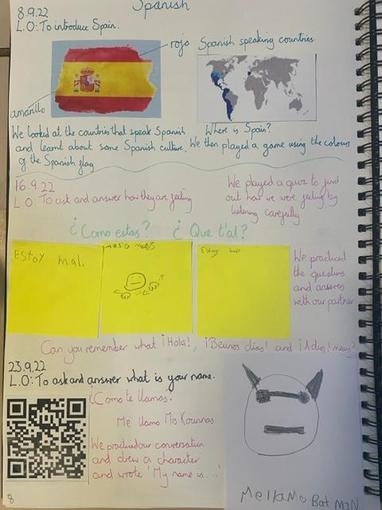 Spanish
8.9.22
L.O: To introduce Spain.
rojo
Spanish speaking countries
amarillo
Where is Spain?
We looked at the countries that speak Spanish
and learnt about some Spanish culture. We then played a game using the colours
of the Spanish flag
16.9.22
L.O: To ask and answer how they are feeling
We played a quiz to find
out how we were feeling by
listening carefully
¿Como estas? ¿Que t'al?
Estoy mal.
Estoy
We practiced
the questions
and answers
with our partner
Can you remember what ¡Hola!, ¡Beunos dias! and ¡Adios! means?
23.9.22
L.O: To ask and answer what is your name.
¿Como te llamas?
Me llamo Miss
We practiced our conversation
and drew a character
and wrote 'My name is ...'
Me llamo Bat Man
8